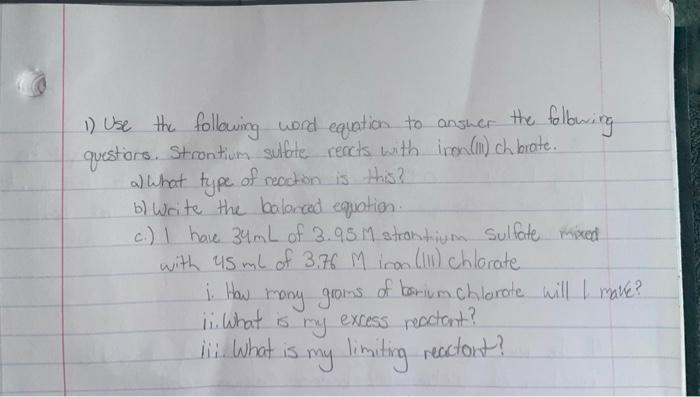 1) Use the following word equation to answer the following
questions. Strontium sulfate reacts with iron(III) chlorate.
a) What type of reaction is this?
b) Write the balanced equation.
c.) I have 34mL of 3.95M strontium sulfate mixed
with 45 mL of 3.76 M iron (III) chlorate
i. How many grams of barium chlorate will I make?
ii. What is my excess reactant?
iii. What is my limiting reactant?